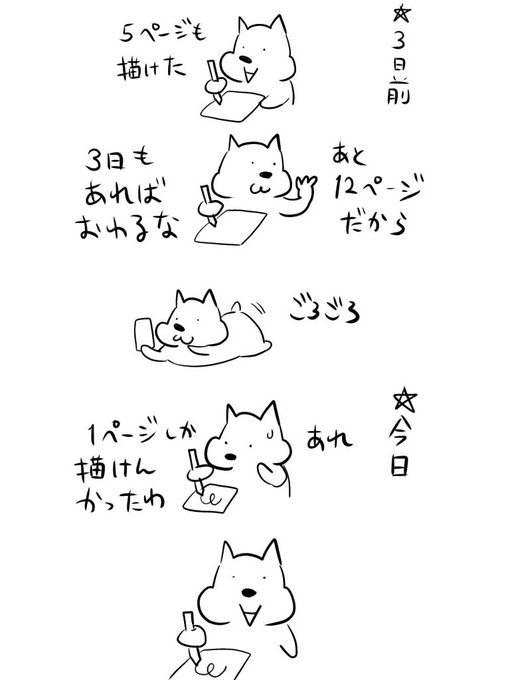 ☆3日前
5ページも
描けた
あと
12ページ
だから
3日も
あれば
おわるな
ごろごろ
☆今日
あれ
1ページしか
描けん
かったわ